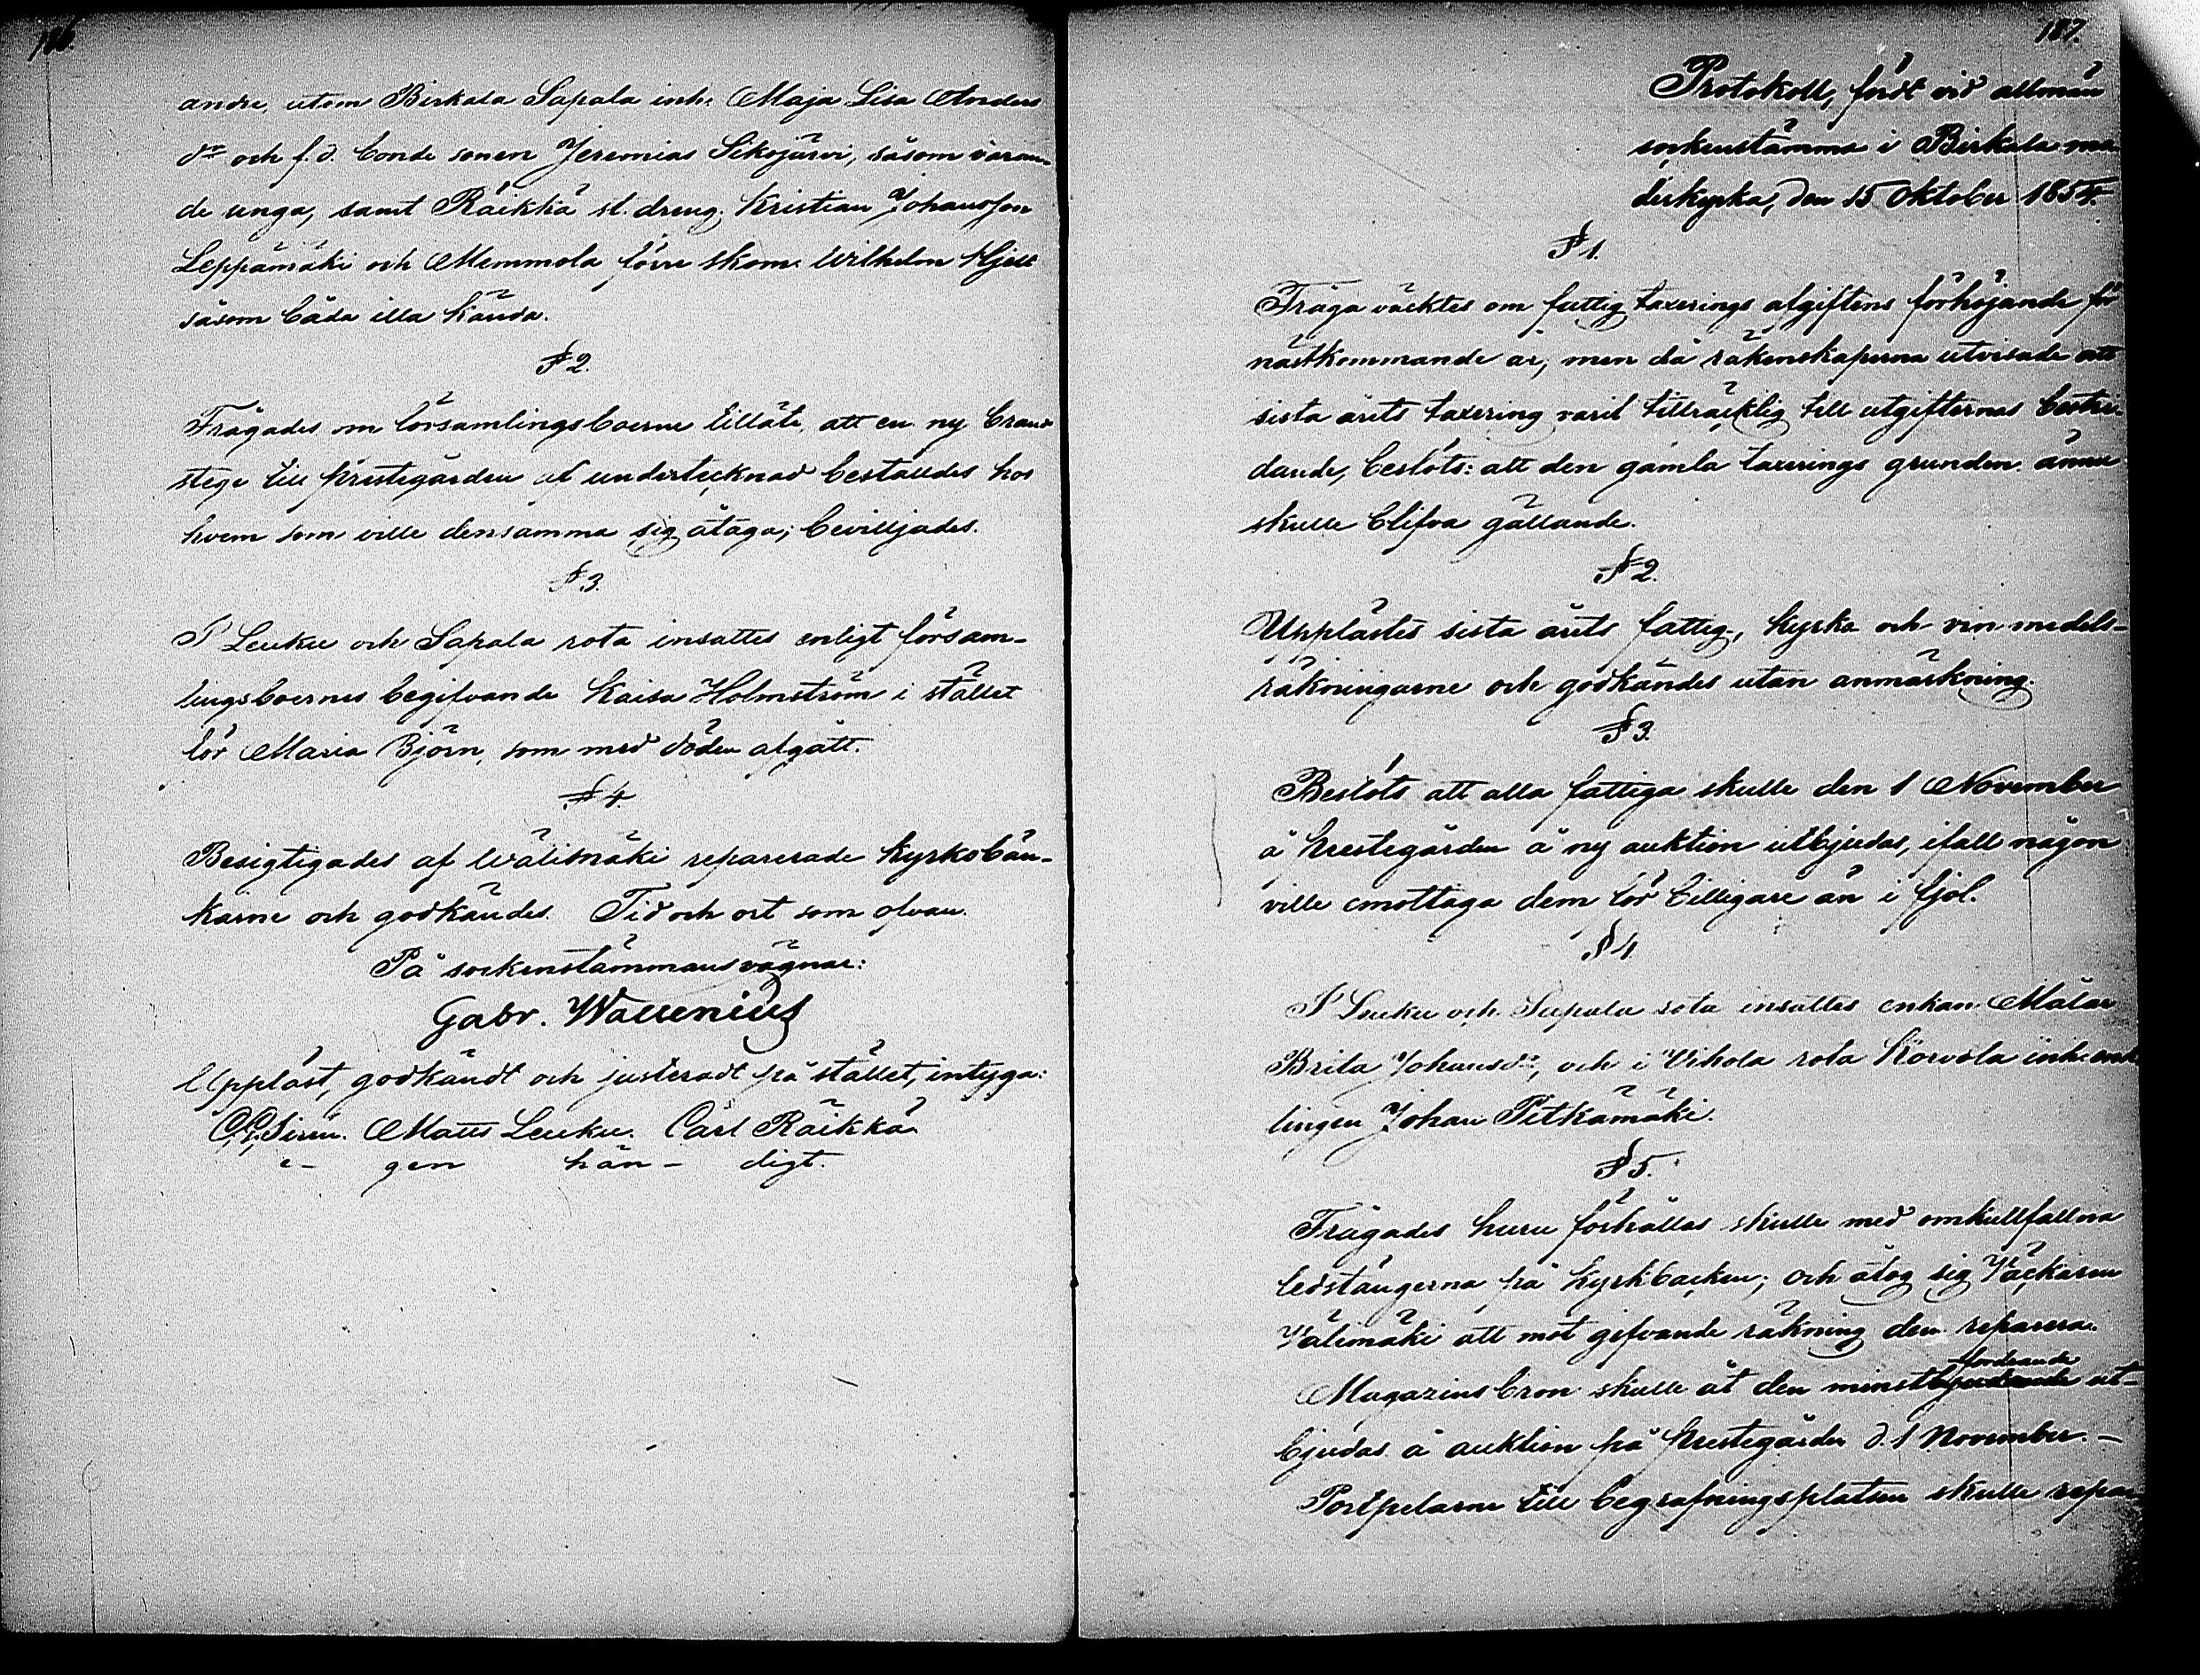 186.
andre, utom Birkala Sapala inh. Maja Lisa Anders
dr och f. d. bonde sonen Jeremias Sikojärvi, såsom varan-
de unga, samt Räikkä st. dreng Kristian Johansson
Leppämäki och Memmola förre skom. Wilhelm Hjelt
såsom båda illa kända.
§ 2.
Frågades om församlingsboerne tilläte, att en ny brand
stege till prestegården af undertecknad beställdes hos
hvem som ville densamma sig åtaga; bevilljades.
§ 3.
I Leuku och Sapala rota insattes enligt försam-
lingsboernes begifvande Kaisa Holmström i stället
för Maria Björn, som med döden afgått.
§ 4.
Besigtigades af Wälimäki reparerade kyrkobän-
karne och godkändes. Tid och ort som ofvan.
På sockenstämmans vägnar:
Gabr. Wallenius
Uppläst, godkändt och justeradt på stället, intyga:
Siren. Matts Leuku. Carl Räikkä
e- gen hän- digt.
187.
Protokoll, fördt vid allmän
sockenstämma i Birkala mo-
derkyrka, den 15 Oktober 1854.
§ 1.
Fråga väcktes om fattig taxerings afgiftens förhöjande för
nästkommande år; men då räkenskaperna utvisade att
sista årets taxering varit tillräcklig till utgifternas bestri-
dande, beslöts: att den gamla taxerings grunden ännu
skulle blifva gällande.
§ 2.
Upplästes sista årets fattig-, kyrko och vin medels-
räkningarne och godkändes utan anmärkning.
§ 3.
Beslöts att alla fattiga skulle den 1 November
å prestegården å ny auktion utbjudas, ifall någon
ville emottaga dem för billigare än i fjol.
§ 4
I Leuku och Sapala rota insattes enkan Målar
Brita Johansdr, och i Vihola rota Korvola inh. enk-
lingen Johan Pitkämäki.
§ 5.
Frågades huru förhållas skulle med omkullfallna
ledstängerna på kyrkbacken; och åtog sig Väckaren
Välimäki att mot gifvande räkning dem reparera.
fordrande
Magazins bron skulle åt den minstbjudande ut-
bjudas å auktion på prestegården d. 1 November. —
Portpelarne till begrafningsplatsen skulle repa-